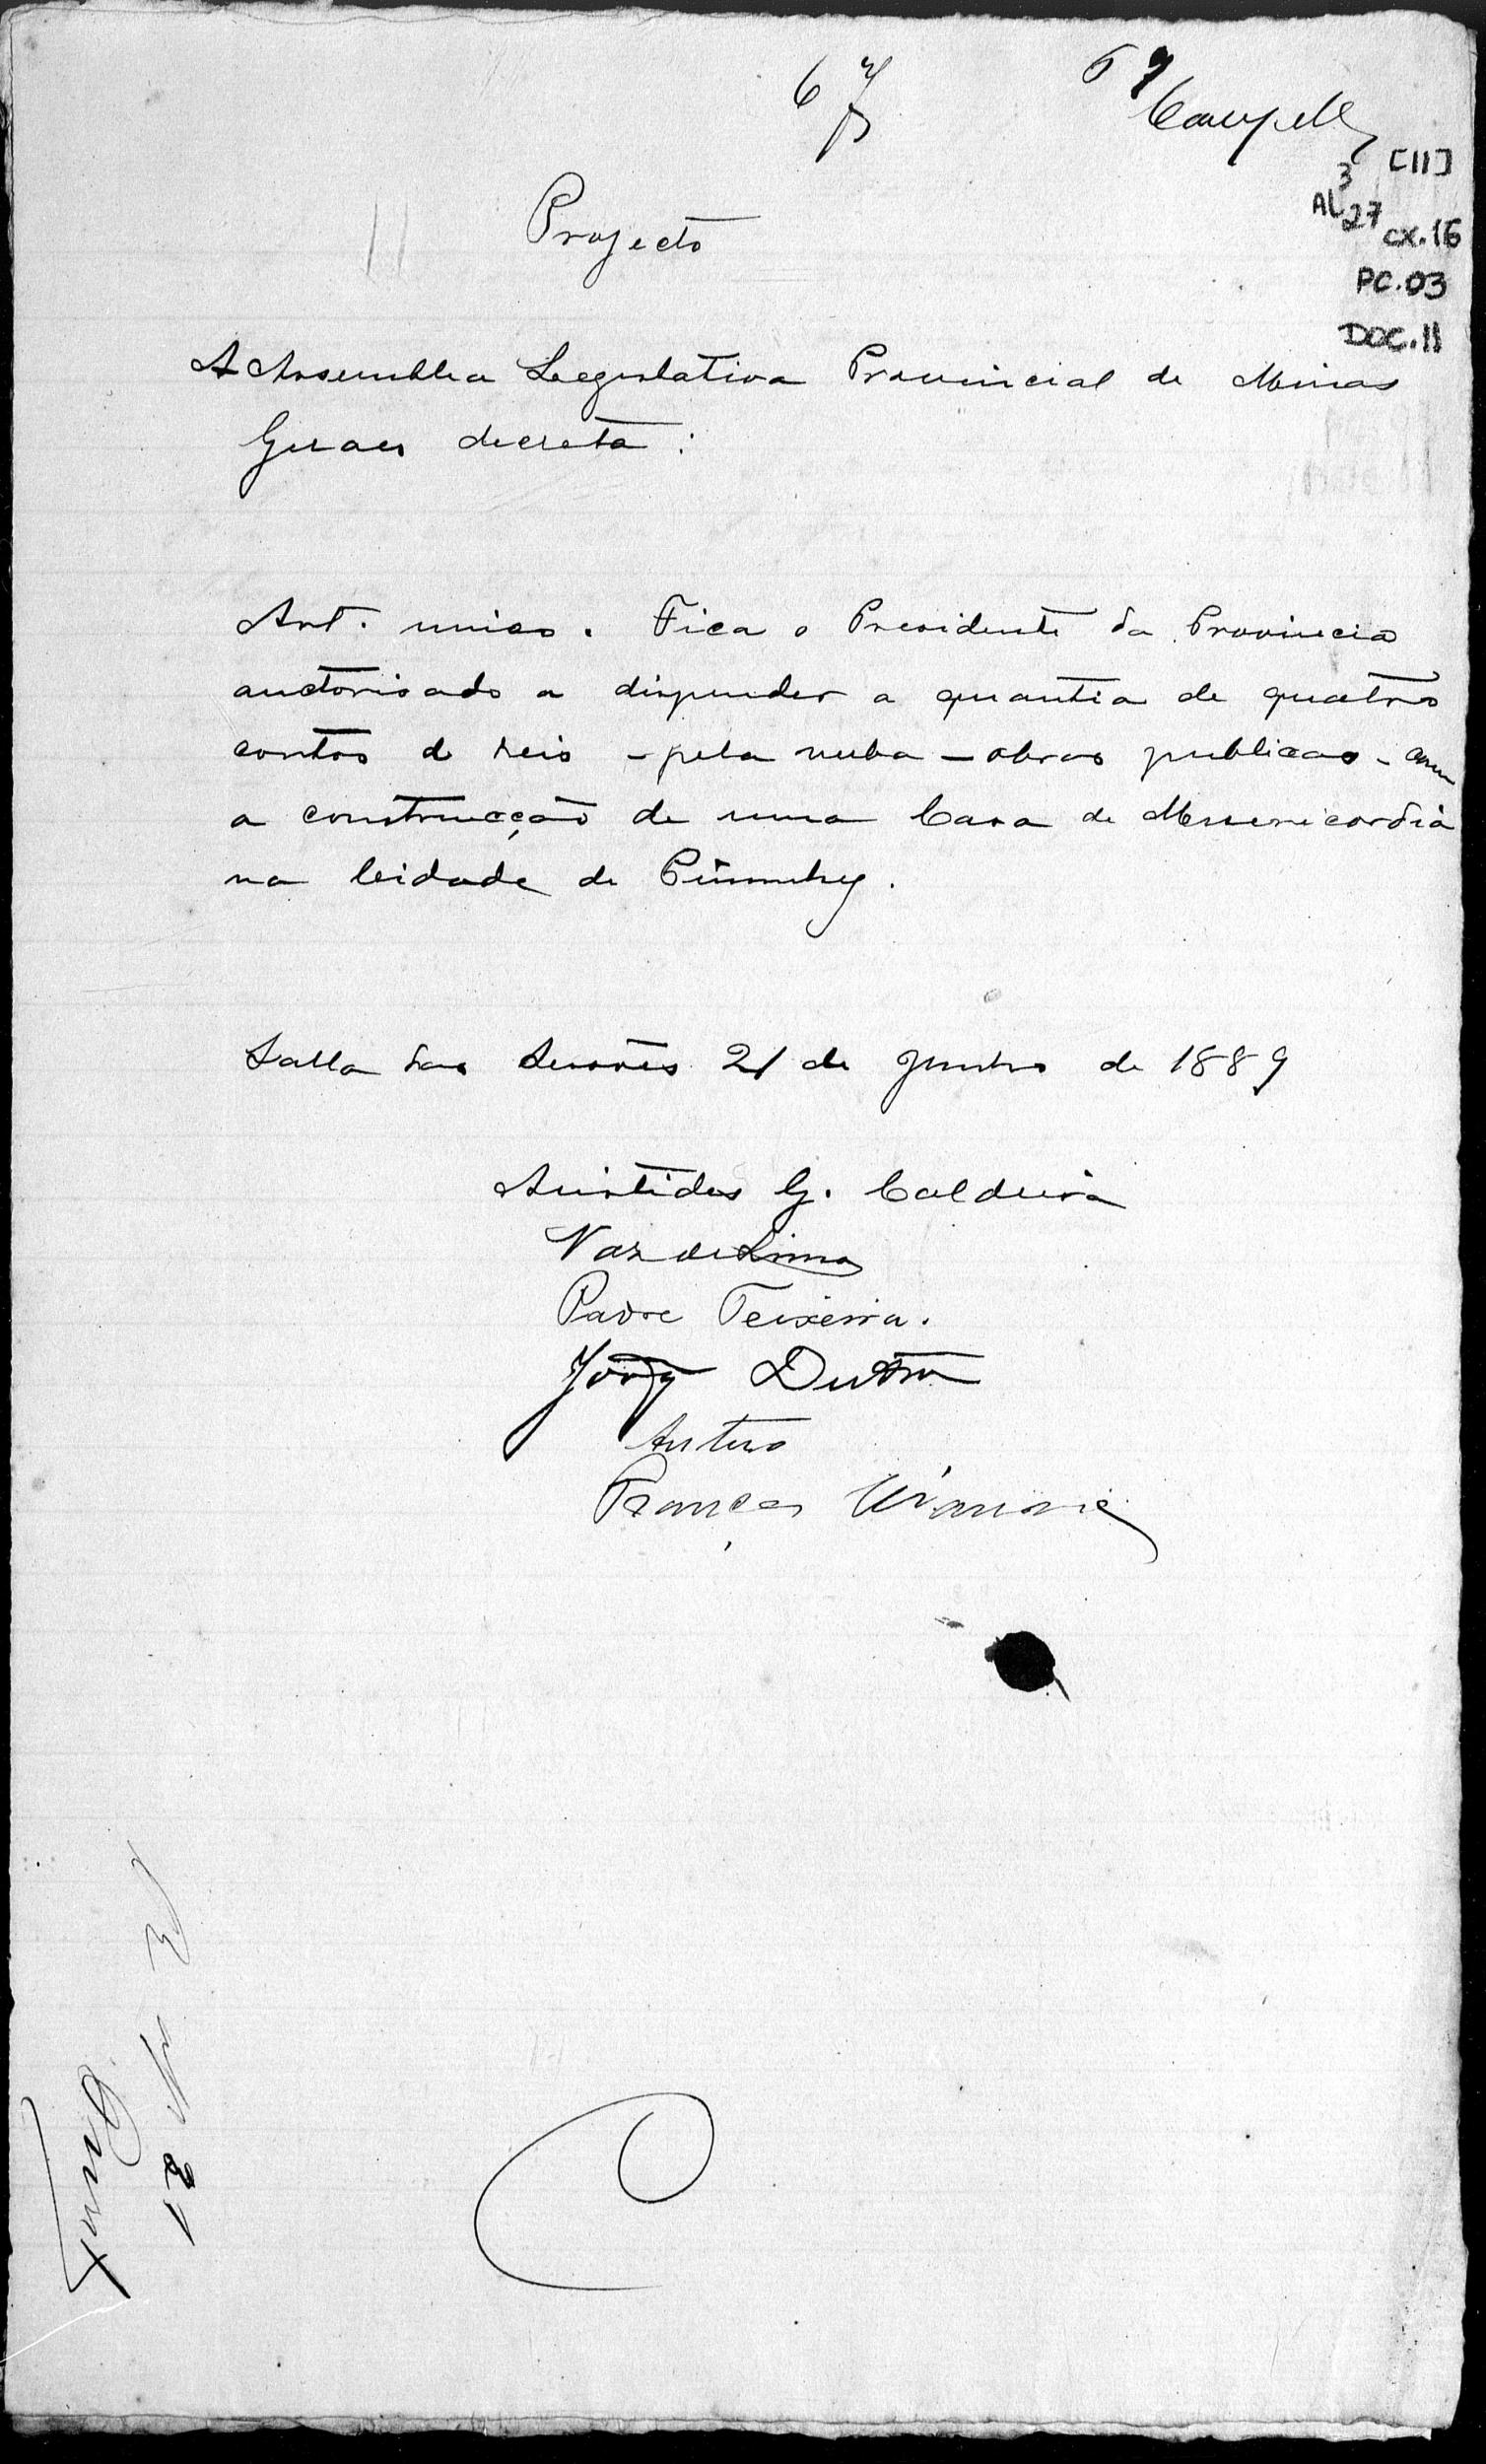 67
67
[11]
3
AL 27 cx.16
PC.03
DOC.11
Projecto
A Assemblea Legislativa Provincial de Minas
Geraes decreta:
Art. unico. Fica o Presidente da Provincia
auctorisado a dispender a quantia de quatro
contos de reis - pela verba - obras publicas - com
a construcção de uma Casa de Misericordia
na Cidade de Piumhy.
Salla das Sessões 21 de Junho de 1889
Aristides G. Caldeira
Vaz de Lima
Padre Teixeira.
Jorge Dutra
Antero
França Vianna